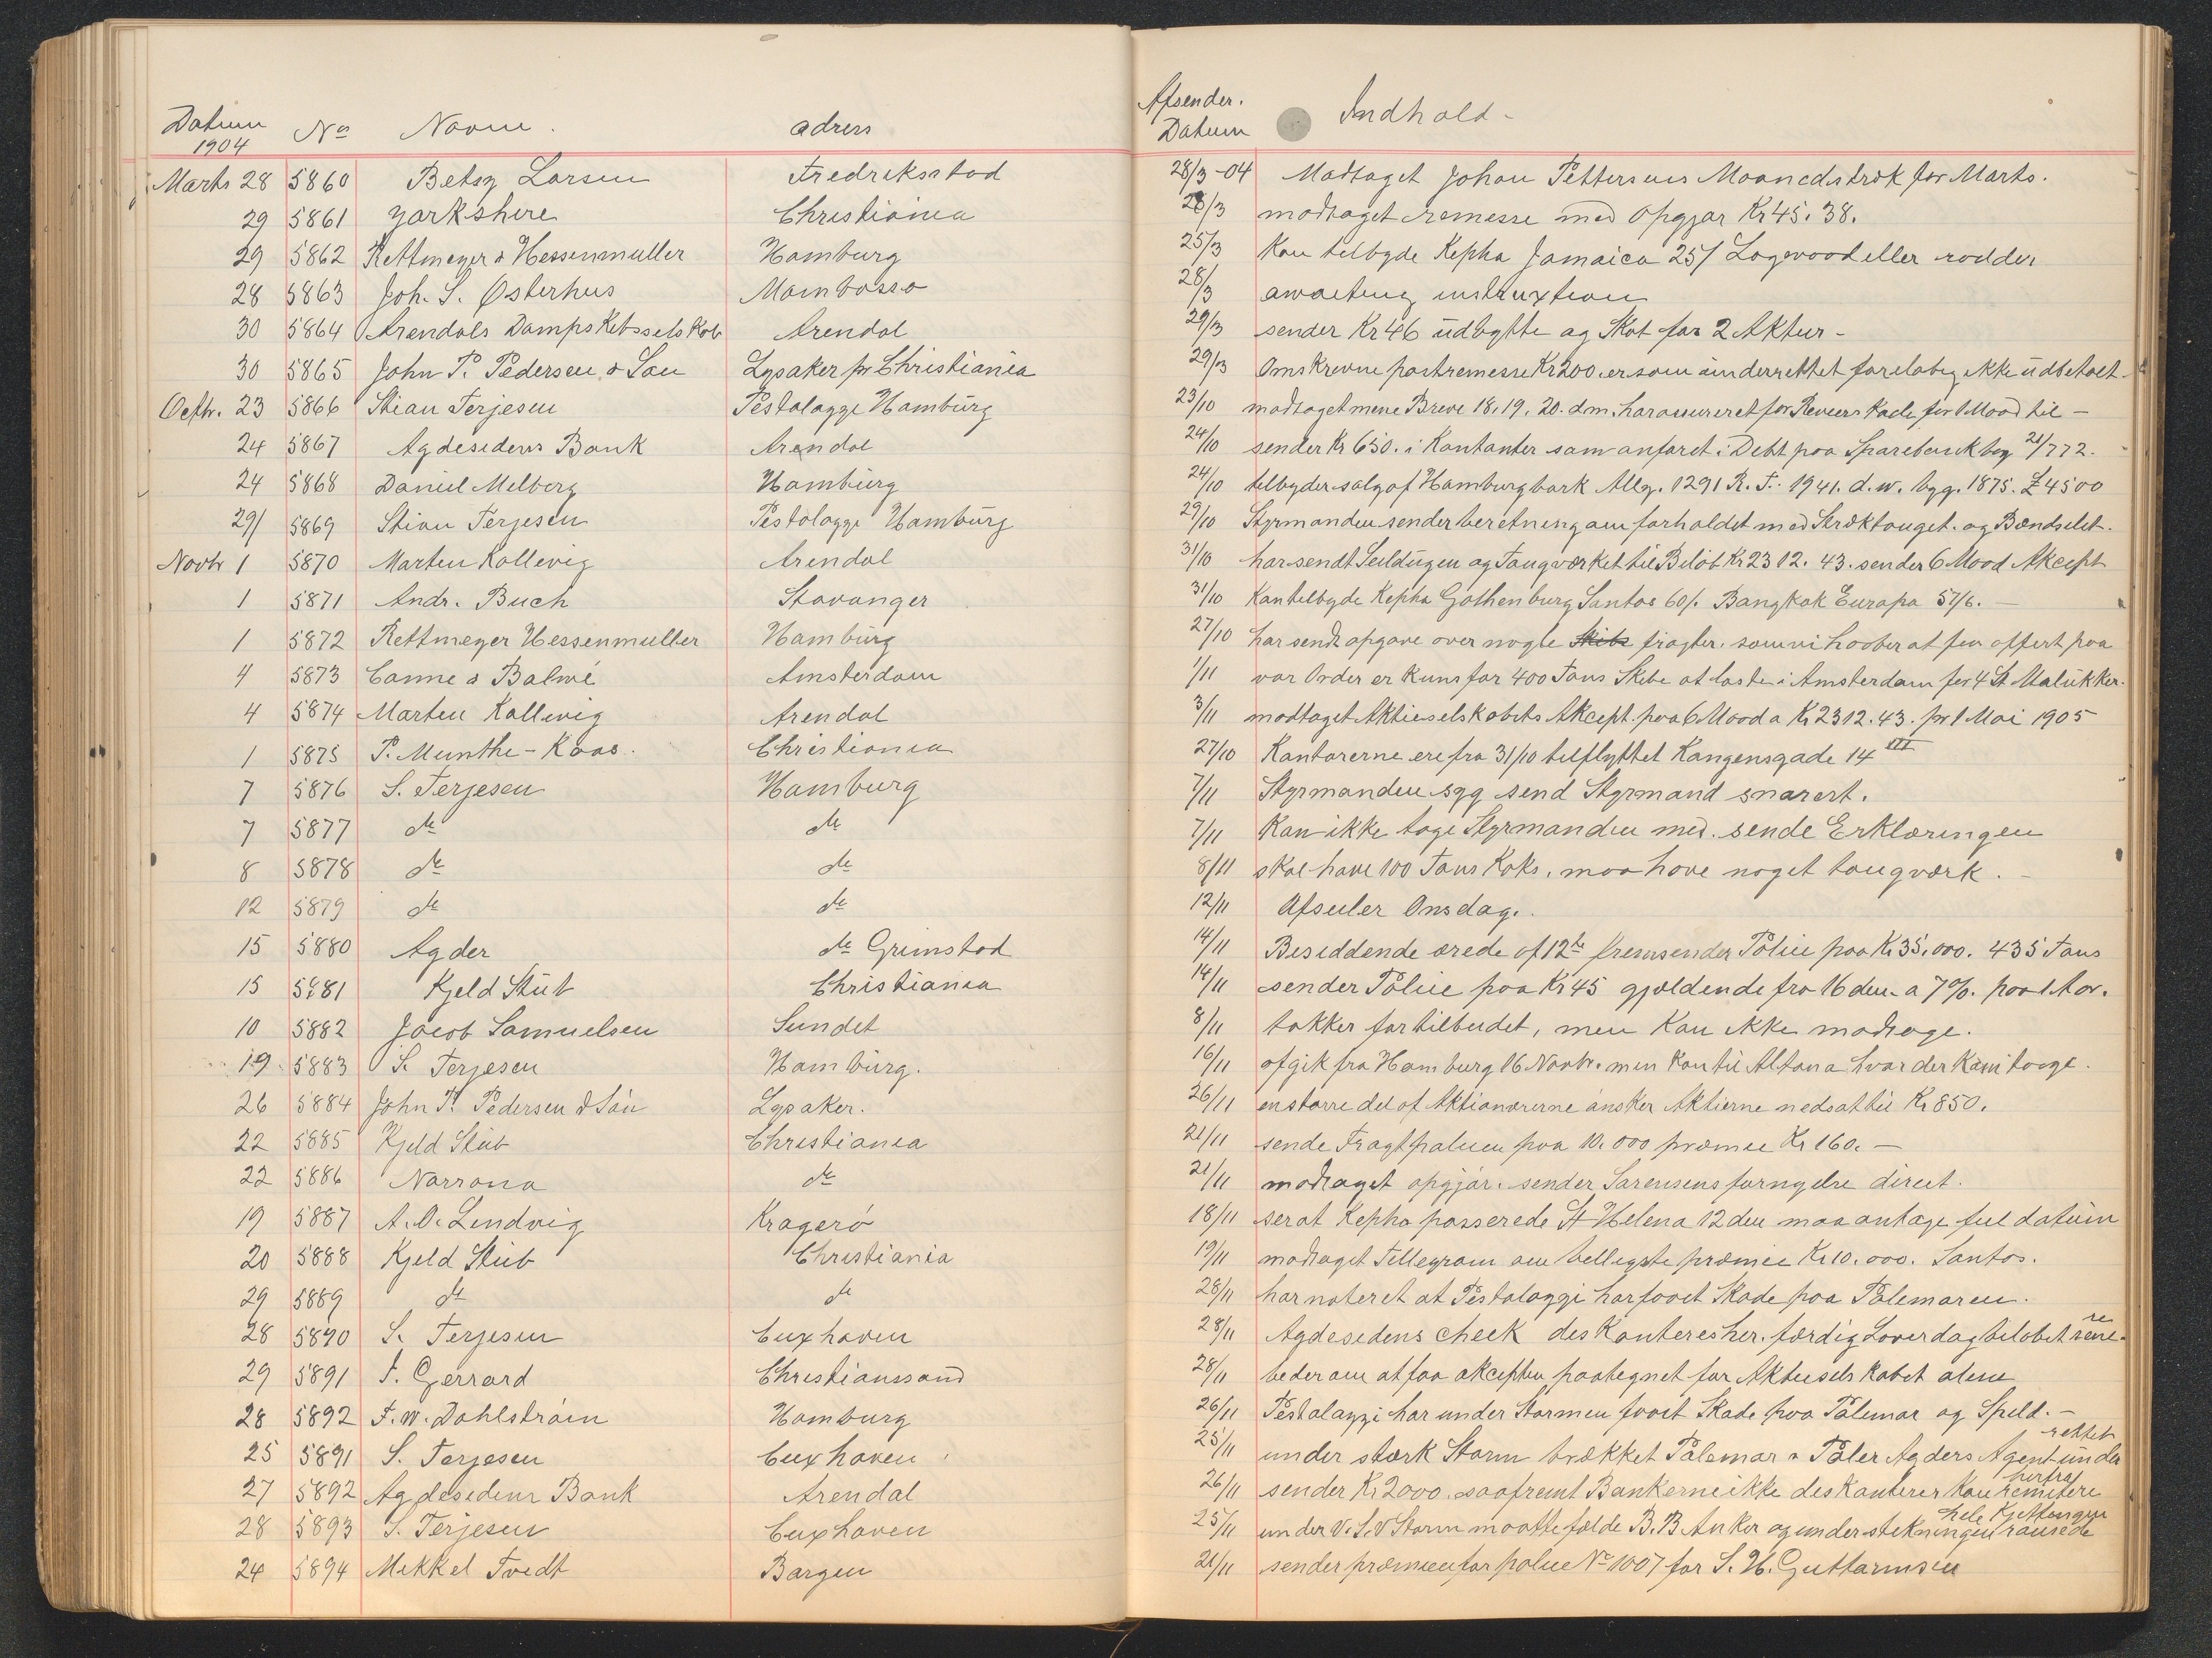 Datum 1904 No Navne. adress Afsender. Datum Indhold-
Marts 28 5860 Betsy Larsen Fredriksstad 28/3-04 Modtaget Johan Pettersens Maanedstræk for Marts.
29 5861 Yorkshire Christiania 28/3 modtaget remesse med Opgjør Kr 45. 38.
29 5862 Rettmeyer & Hessenmuller Hamburg 25/3 Kan tilbyde Kepha Jamaica 25/ Logwood eller rødder
28 5863 Joh. S. Østerhus Mombassa 28/3 awaiting instruxtion
30 5864 Arendals DampsKibsselsKab Arendal 29/3 sender Kr 46 udbytte ag Skat for 2 Aktier-
30 5865 John P. Pedersen & Søn Lysaker pr Christiania 29/3 Omskrevne postremesse Kr 200. er som underrettet foreløbig ikke udbetalt-
Octbr. 23 5866 Stian Terjesen Pestalozzi Hamburg 23/10 modtaget mine Breve 18. 19. 20. dm. for 1 Maad til-
24 5867 Agdesidens Bank Arendal 24/10 sender Kr 650. i Kontanter som anføret i Debt paa Sparebank bog 21/772.
24 5868 Daniel Melberg Hamburg 24/10 tilbyder salg af Hamburg bark Allg. 1291 R. T. 1941. d. w. byg. 1875. £ 4500
29/ 5869 Stian Terjesen Pestalozzi Hamburg 29/10 Styrmanden sender beretning om forholdet med Stræktouget. og Bændselet.
Novbr 1 5870 Morten Kallevig Arendal 31/10 har sendt Seildugen og Taugværket til Beløb Kr 2312. 43. sender 6 Maad Akcept
1 5871 Andr. Buch Stavanger 31/10 Kan tilbyde Kepha Gothenburg Santos 60/. Bangkok Europa 57/6.-
1 5872 Rettmeyer Hessenmuller Hamburg 27/10 har sendt opgave over nogle Skibe fragter. som vi haaber at faa offert paa
4 5873 Canne & Balwé Amsterdam 1/11 vor Order er kuns for 400 Tons Skibe at laste i Amsterdam for 4 St Malukker.
4 5874 Morten Kallevig Arendal 3/11 modtaget Aktieselskabets Akcept. paa 6 Maad a Kr 2312. 43. pr 1 Mai 1905
1 5875 P. Munthe-Kaas. Christiania 27/10 Kontorerne ere fra 31/10 tilflyttet Kongensgade 14 III
7 5876 S. Terjesen Hamburg 7/11 Styrmanden syg send Styrmand snarest.
7 5877 do do 7/11 Kan ikke tage Styrmanden med. sende Erklæringen
8 5878 do do 8/11 skal have 100 Tons Koks, maa have noget taugværk.-
12 5879 do do 12/11 Afseiler Onsdag.
15 5880 Agder do Grimstad 14/11 Besiddende ærede af 12te fremsender Police paa Kr 35.000. 435 Tons
15 5881 Kjeld Stub Christiania 14/11 sender Police paa Kr 45 gjældende fra 16 den a 7%. paa 1 Aar.
10 5882 Jacob Samuelsen Sundet 8/11 takker for tilbudet, men Kan ikke modtage.
19 5883 S. Terjesen Hamburg. 16/11 afgik fra Hamburg 16 Novbr. men Kom til Altona hvor der Kom taage.
26 5884 John P. Pedersen & Søn Lysaker. 26/11 en større del af Aktionærerne ønsker Aktierne nedsat til Kr 850.
22 5885 Kjeld Stub Christiania 21/11 sende Fragtpolicen paa 10.000 præmie Kr 160.-
22 5886 Norrona do 21/11 modtaget opgjør. sender Sørensens fornyelse direct.
19 5887 A. O. Lindvig Kragerö 18/11 ser at Kepha passerede St Helena 12 den maa antage feil datum
20 5888 Kjeld Stub Christiania 19/11 modtaget Tellegram om billigste præmie Kr 10.000. Santos.
29 5889 do do 28/11 har noteret at Pestalozzi har faaet Skade paa Palemaren.
28 5890 S. Terjesen Cuxhaven 28/11 Agdesidens check desKonteres her. færdig Løverdag beløbet
29 5891 F. Gerrard Christianssand 28/11 beder om at faa akcepten paategnet for Aktieselskabet alene
28 5892 F. W. Dahlström Hamburg 26/11 Pestalozzi har under Stormen faaet Skade paa Palemar og Speld.-
25 5891 S. Terjesen Cuxhaven 25/11 under stærk Storm brækket Palemar & Paler Agders Agent under rettet
27 5892 Agdesidens Bank Arendal 26/11 sender Kr 2000. saafremt Bankerne ikke desKonterer Kan remitere herfra
28 5893 S. Terjesen Cuxhaven 25/11 under V. S. V Storm maatte fælde B. B Anker og under stekningen rausede hele Kjettingen
24 5894 Mekkel Tvedt Bergen 21/11 sender præmien for police No 1007 for S. H. Guttormsen